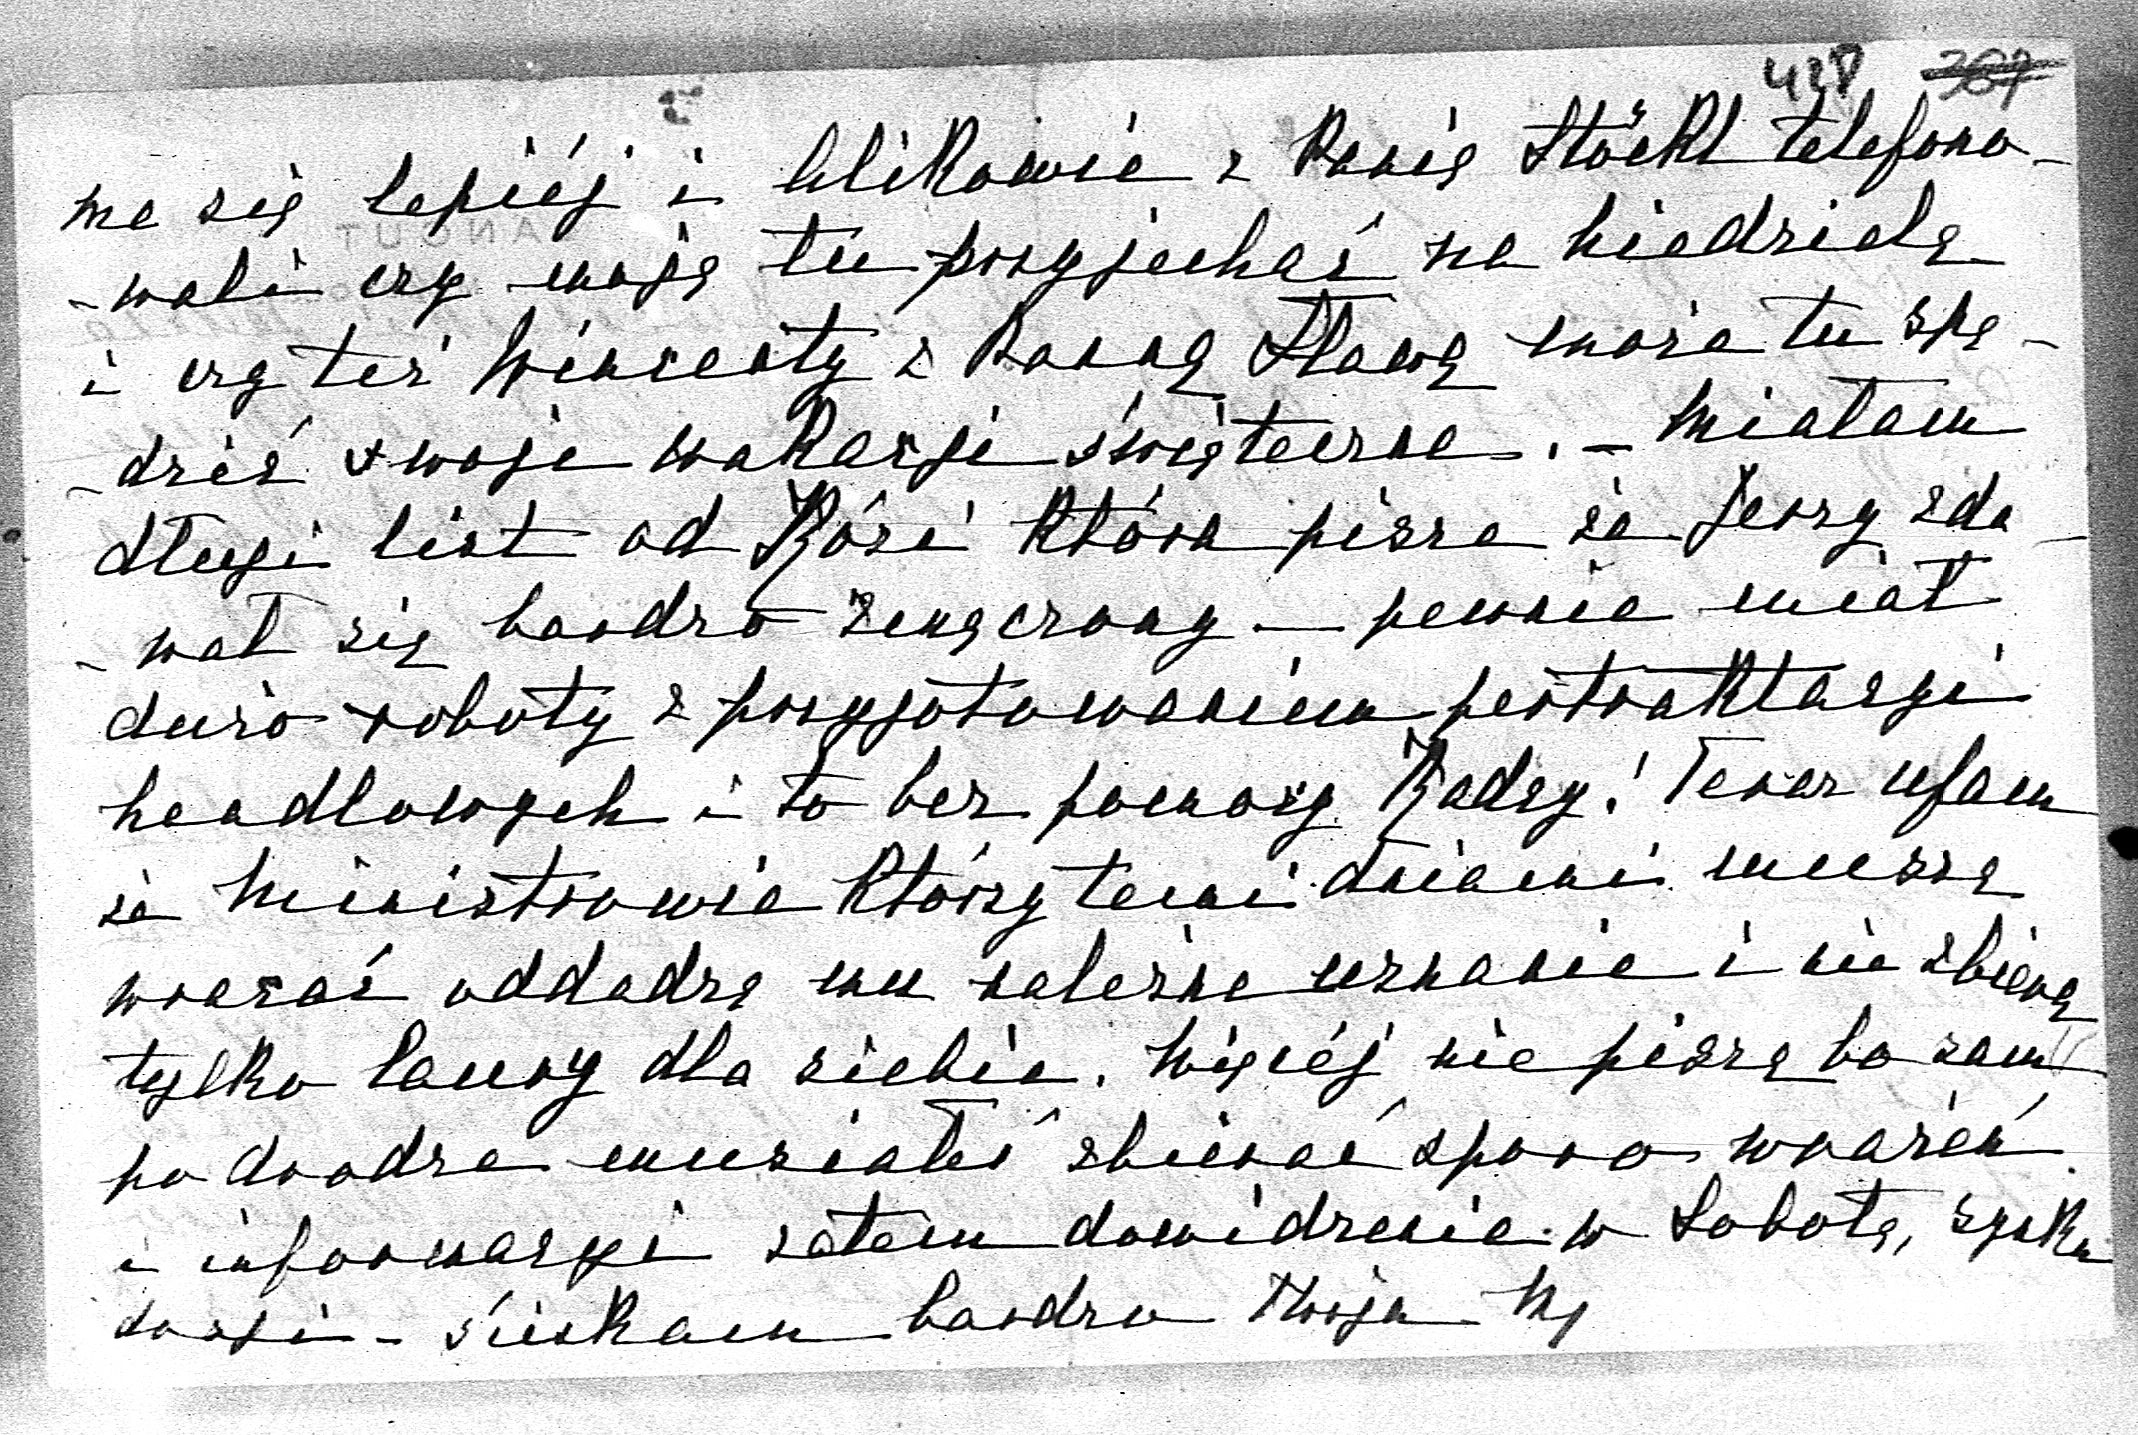 428 207
ma się lepiéj i Ulikowie z Panią Stöckl telefono-
-wali czy mogą tu przyjechać na Niedzielę
i czy też Wincenty z Panną Sławą może tu spę-
-dzić swoje wakacje świąteczne. - Miałam
długi list od Rózi która pisze że Jerzy zda-
-wał się bardzo zmęczony — pewnie miał
dużo roboty z przygotowaniem pertraktacyi
handlowych i to bez pomocy Radcy! Teraz ufam
że Ministrowie którzy temi dniami muszą
wracać oddadzą mu należne uznanie i nie zbiorą
tylko laury dla siebie. Więcéj nie piszę bo sam
po drodze musiałeś zbierać sporo wrażeń
i informacyi zatem dowidzenia w Sobotę,
drogi - ściskam bardzo Twoja